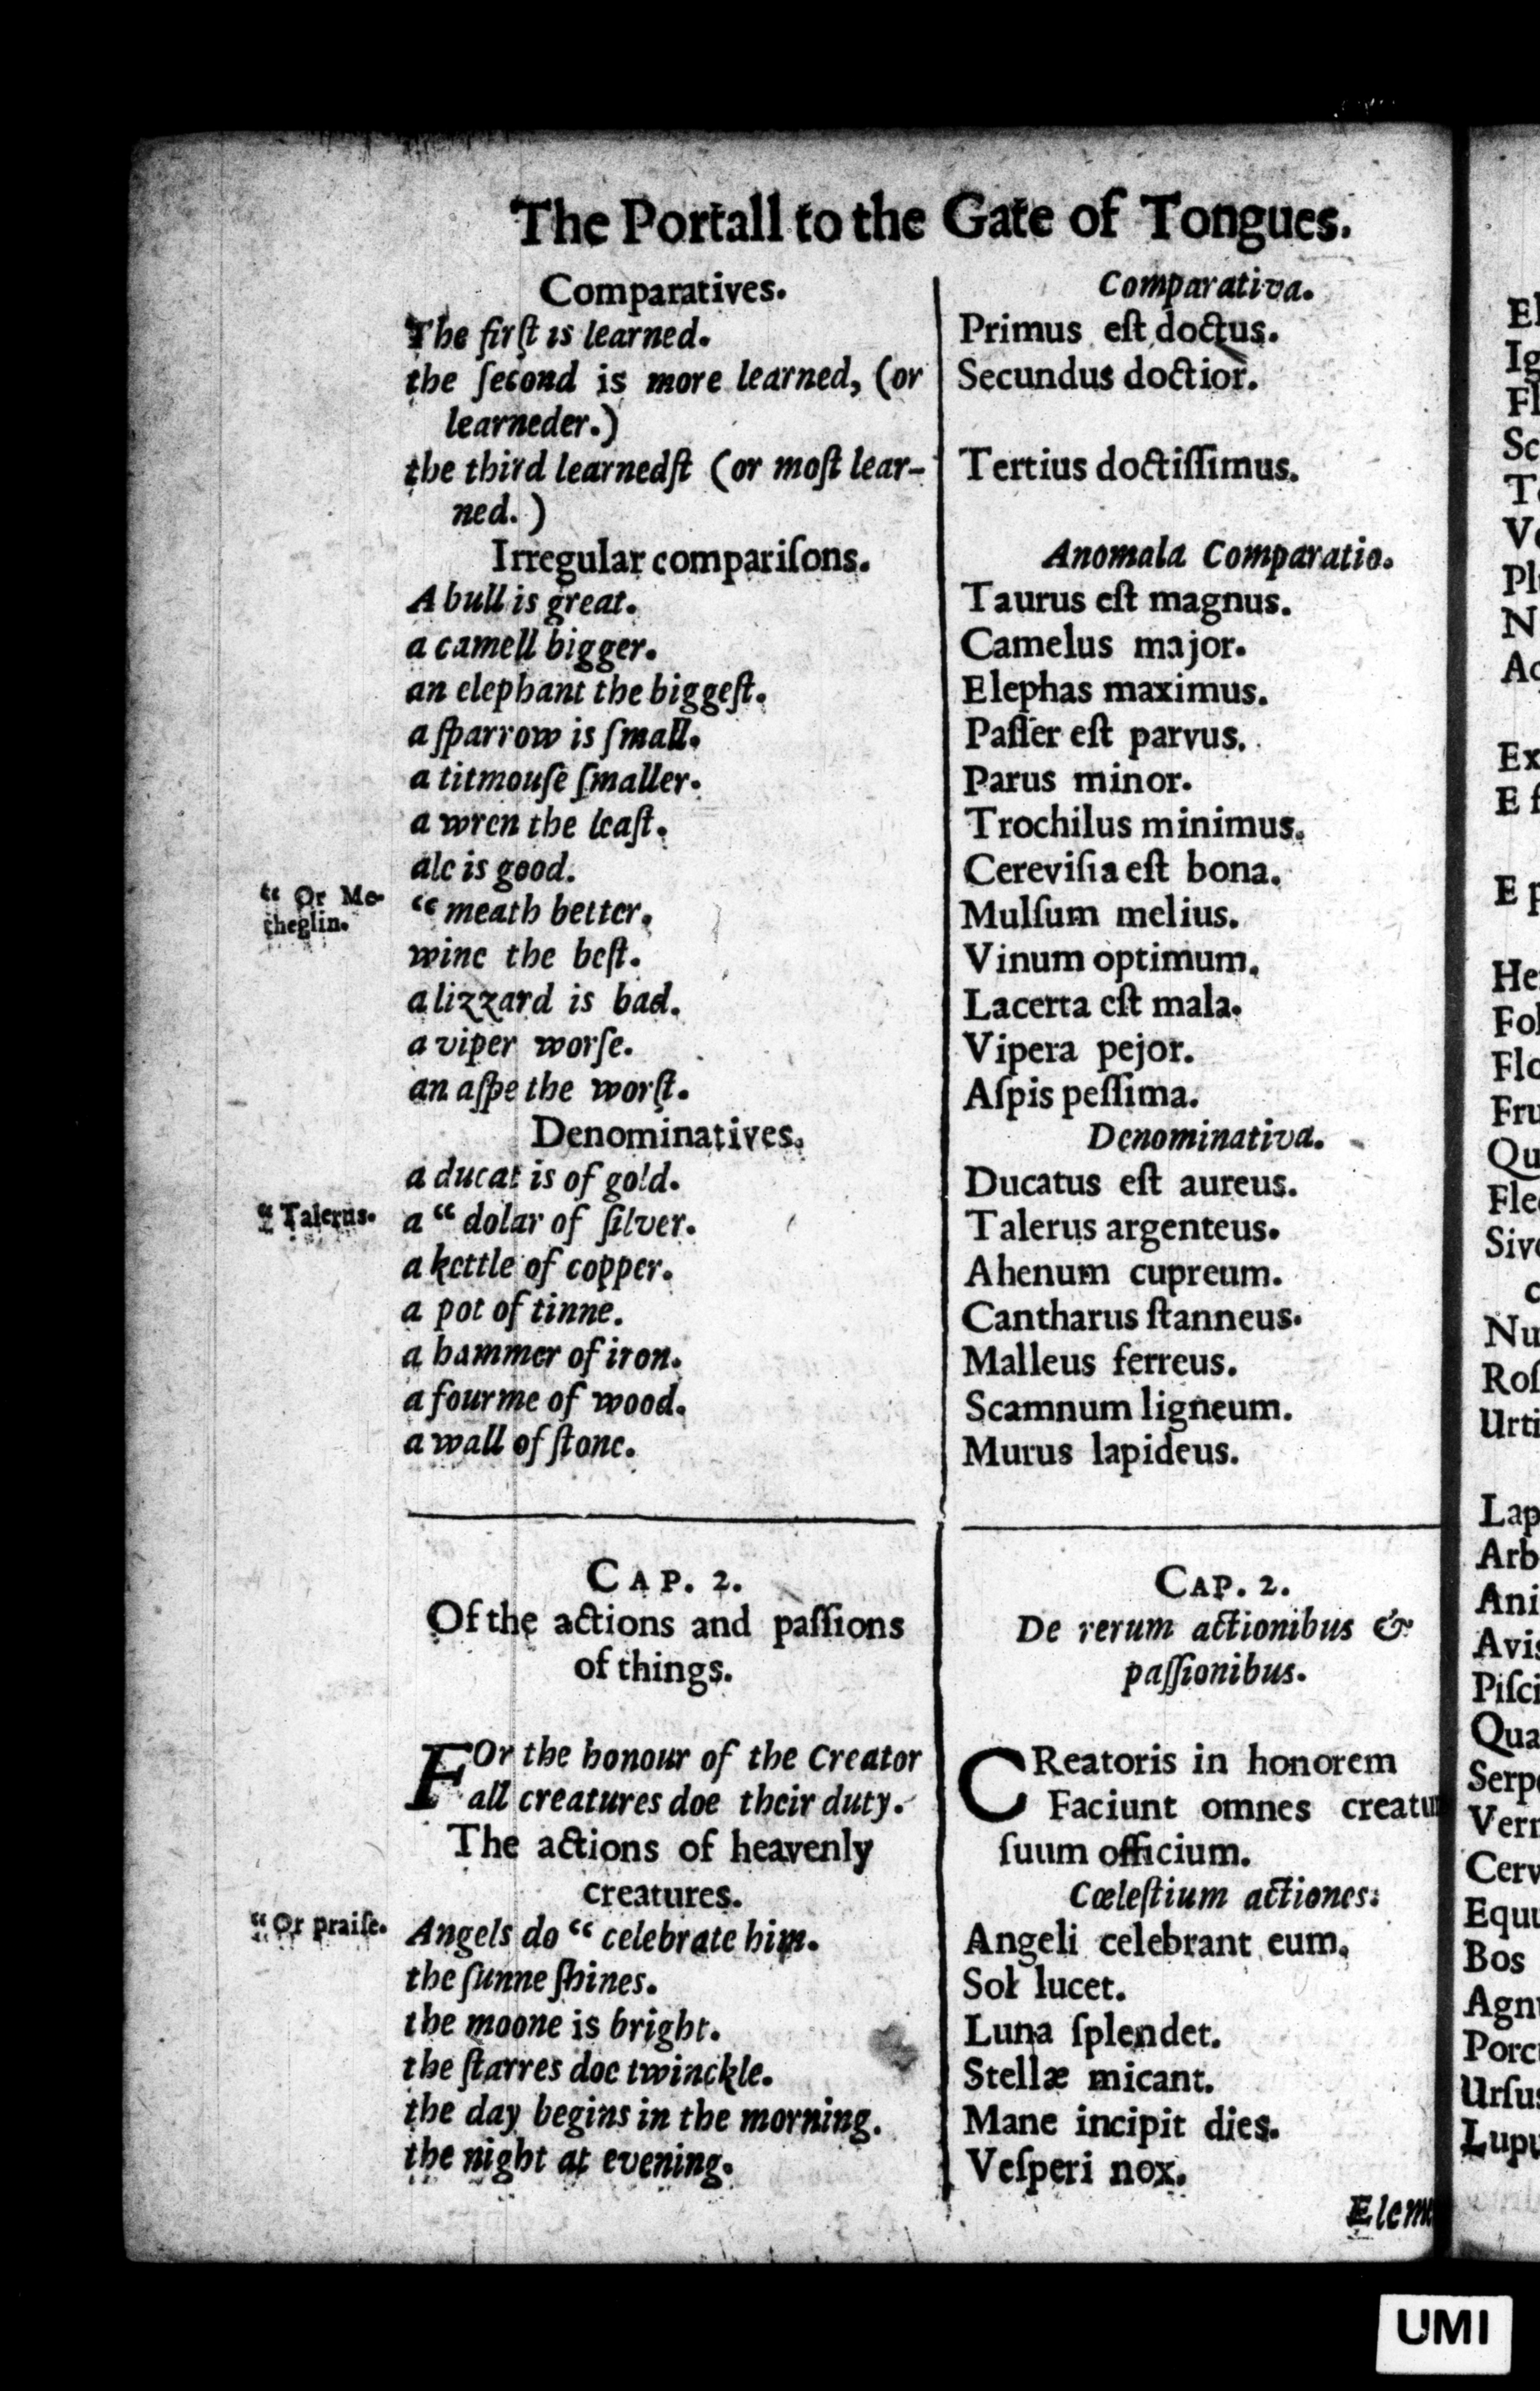 The Portall to the Gate of Tongues.
Comparatives.
The firſt is learned.
the ſecond is more learned, (or
learneder.)
the third learnedſt (or moſt lear-
ned.)
Irregular compariſons.
A bull is great.
a camell bigger.
an elephant the biggeſt.
a ſparrow is ſmall.
a titmouſe ſmaller.
a wren the leaſt.
ale is good.
“ Or Me-
theglin.
“ meath better.
wine the beſt.
a lizzard is bad.
a viper worſe.
an aſpe the worſt.
Denominatives.
a ducat is of gold.
“ Talerus.
a “ dolar of ſilver.
a kettle of copper.
a pot of tinne.
a hammer of iron.
a fourme of wood.
a wall of ſtone.
CAP. 2.
Of the actions and paſſions
of things.
FOr the honour of the Creator
all creatures doe their duty.
The actions of heavenly
creatures.
“ Or praiſe.
Angels do “ celebrate him.
the ſunne ſhines.
the moone is bright.
the ſtarres doe twinckle.
the day begins in the morning.
the night at evening.
Comparativa.
Primus eſt doctus.
Secundus doctior.
Tertius doctiſſimus.
Anomala Comparatio.
Taurus eſt magnus.
Camelus major.
Elephas maximus.
Paſſer eſt parvus.
Parus minor.
Trochilus minimus.
Cereviſia eſt bona.
Mulſum melius.
Vinum optimum.
Lacerta eſt mala.
Vipera pejor.
Aſpis peſſima.
Denominativa.
Ducatus eſt aureus.
Talerus argenteus.
Ahenum cupreum.
Cantharus ſtanneus.
Malleus ferreus.
Scamnum ligneum.
Murus lapideus.
CAP. 2.
De rerum actionibus &
paſſionibus.
CReatoris in honorem
Faciunt omnes creatu
ſuum officium.
Cœleſtium actiones:
Angeli celebrant eum.
Sol lucet.
Luna ſplendet.
Stellæ micant.
Mane incipit dies.
Veſperi nox.
Elem
El
Ig
Fl
Sc
T
V
Pl
N
Ac
Ex
E
E
He
Fol
Flo
Fru
Qu
Fle
Siv
c
Nu
Roſ
Urti
Lap
Arb
Ani
Avis
Piſci
Qua
Serp
Verr
Cerv
Equu
Bos
Agn
Porc
Urſus
Lupu
UMI